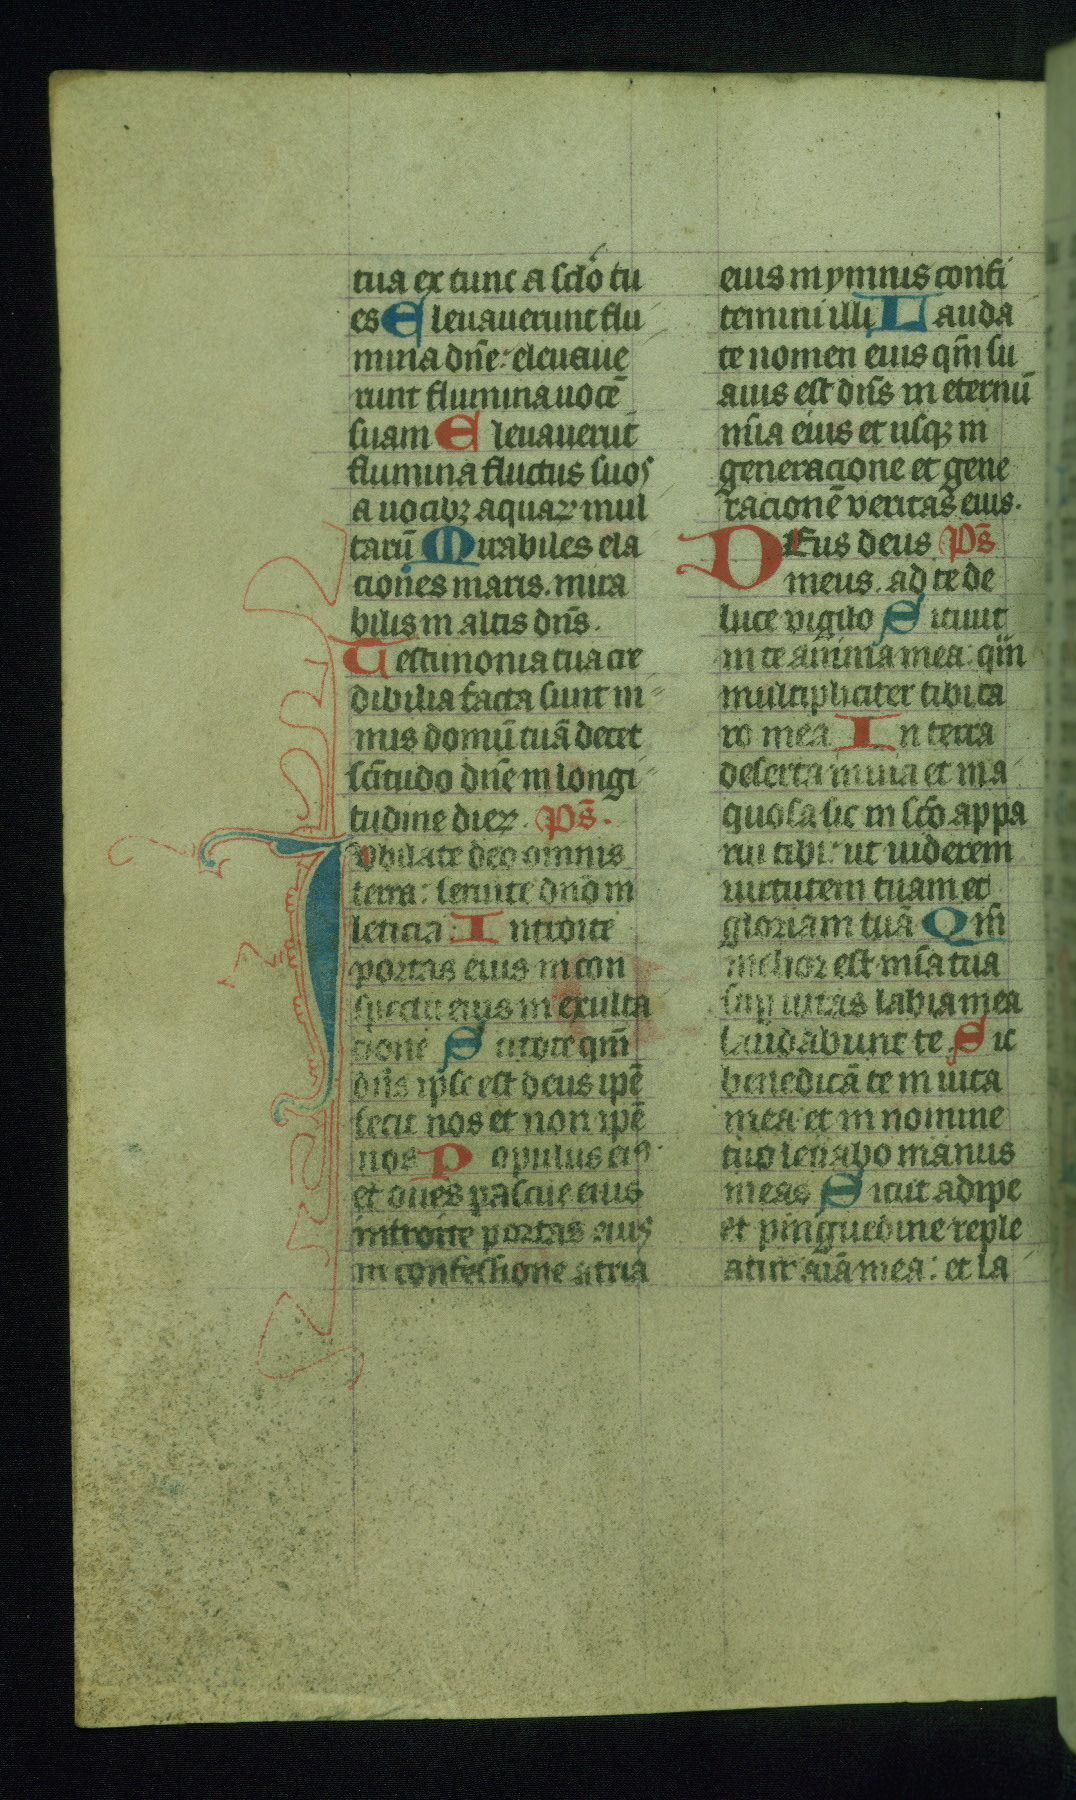 tua ex tunc a sclo tu
es Eleuauerunt flu
mina dn̄e: eleuaue
runt flumina uocē
suam Eleuauerūt
flumina fluctus suos
a uocibꝫ aquaꝝ mul
tarū Mirabiles ela
ciones maris. mira
bilis in altis dn̄s.
Testimonia tua cre
dibilia facta sunt ni
mis domū tuā decet
scītudo dn̄e in longi
tudine dieꝝ. Ps̄.
Iubilate deo omnis
terra: seruite dn̄o in
leticia: Introite
portas eius in con
spectu eius in exulta
cione Scitote qm̄
dn̄s ipse est deus ipē
fecit nos et non ipē
nos Populus eiꝰ
et oues pascue eius
introite portas eius
in confessione atria
eius in ymnis confi
temini illi Lauda
te nomen eius qm̄ su
auis est dn̄s in eternū
mīa eius et usqꝫ in
generacione et gene
racionē veritas eius.
DEus deus Ps̄
meus. ad te de
luce vigilo Sitiuit
in te anima mea: qm̄
multipliciter tibi ca
ro mea In terra
deserta inuia et ina
quosa sic in scō appa
rui tibi: ut uiderem
uirtutem tuam et
gloriam tuā Qm̄
melior est mīa tua
sup uitas labia mea
laudabunt te Sic
benedicā te in uita
mea: et in nomine
tuo leuabo manus
meas Sicut adipe
et pinguedine reple
atur aīa mea: et la